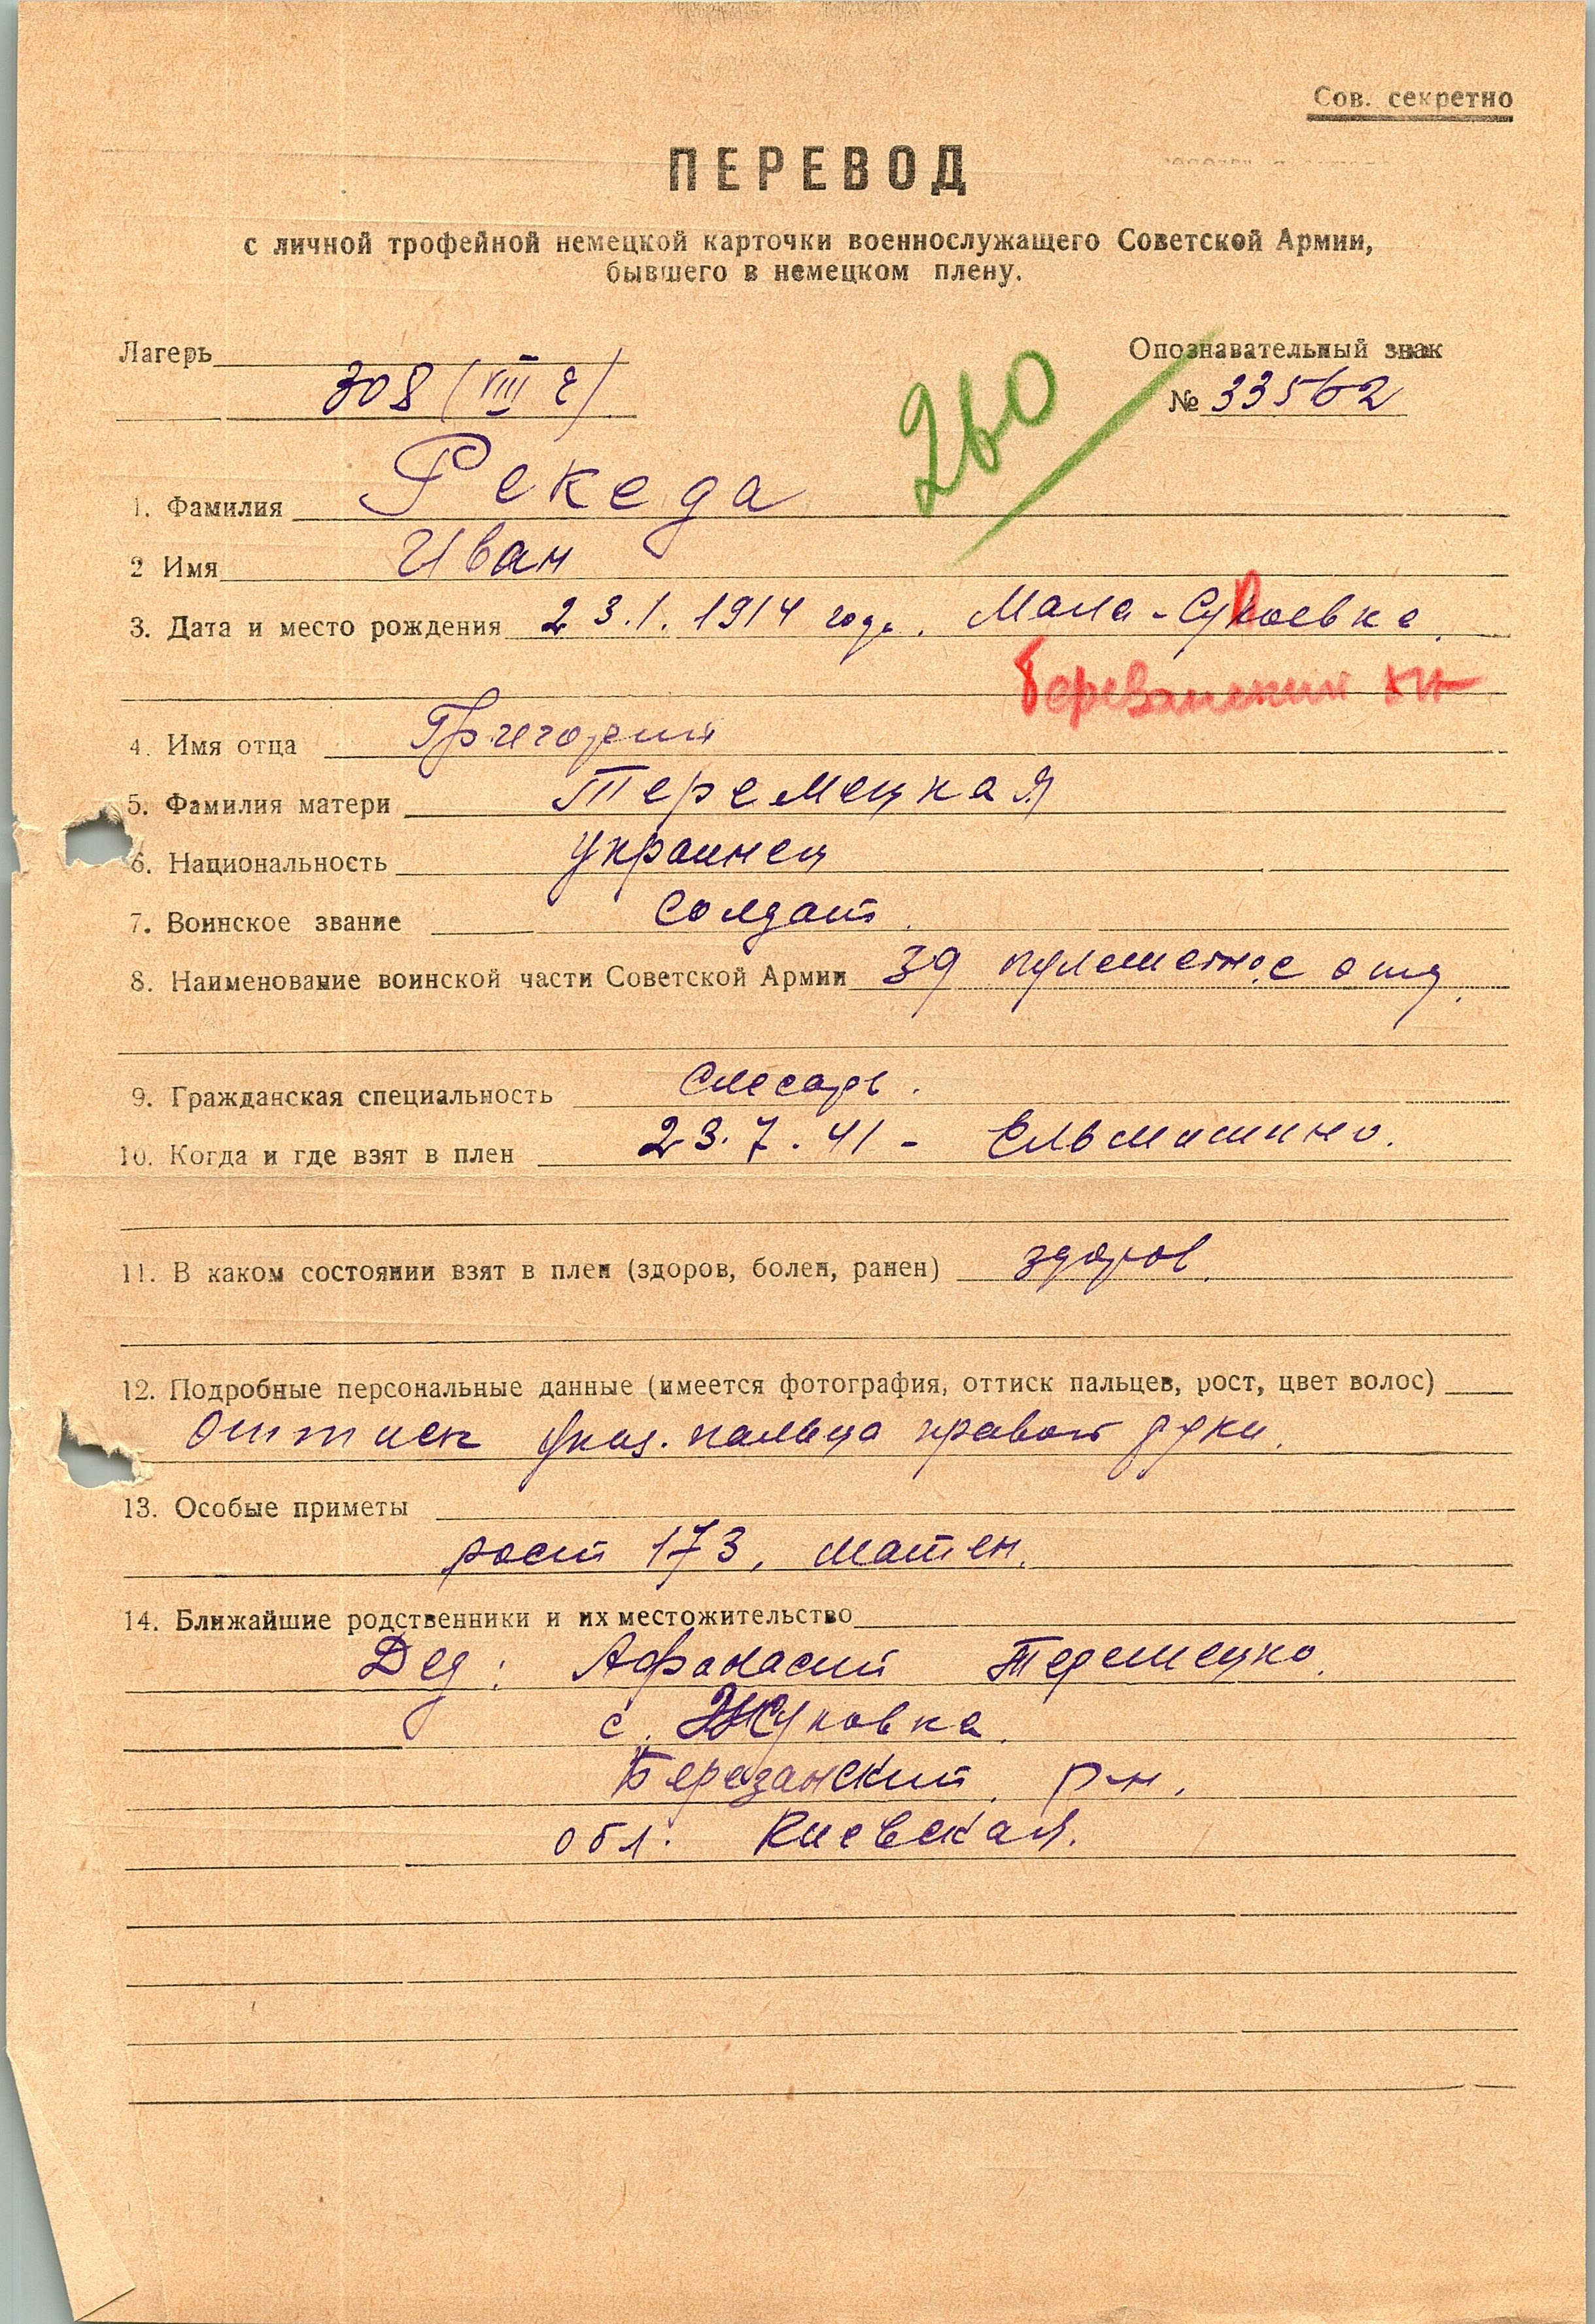 Сов. секретно
ПЕРЕВОД
с личной трофейной немецкой карточки военнослужащего Советской Армии,
бывшего в немецком плену.
Лагерь 308 (VIII E)
260
Опознавательный знак
№ 33562
1. Фамилия Рекеда
2 Имя Иван
3. Дата и место рождения 23.1.1914 года. Мала-
4. Имя отца Григорий
5. Фамилия матери Теремецкая
6. Национальность Украинец
7. Воинское звание Солдат
8. Наименование воинской части Советской Армии 39 пулеметное отд.
9. Гражданская специальность Слесарь.
10. Когда и где взят в плен 23.7.41 -
11. В каком состоянии взят в плен (здоров, болен, ранен) здоров.
12. Подробные персональные данные (имеется фотография, оттиск пальцев, рост, цвет волос)
Оттиск указ. пальца правой руки.
13. Особые приметы
рост 173,
14. Ближайшие родственники и их местожительство
Дед: Афанасий Теремецко.
с. Жуковка.
Березанский р-н.
обл. Киевская.